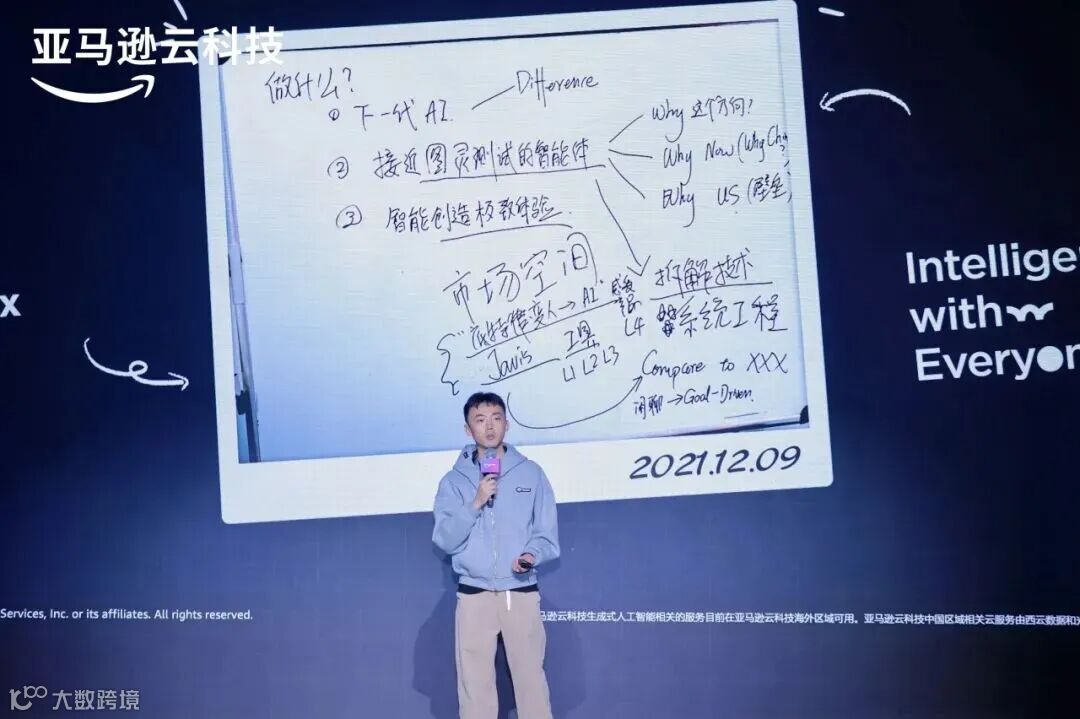 亚马逊云科技
做什么?
① 下一代 AI. Difference
② 接近图灵测试的智能体
Why 这个方向?
Why Now (Why Cha
Why US (壁垒)
③ 智能创造极致体验.
市场空间
"底特律变人→AI"
Javis 工具
L1 L2 L3
L4
拆解技术
系统工程
Compare to XXX
闲聊→Goal-Driven.
2021.12.09
x
Intellige
with
Everyon
Services, Inc. or its affiliates. All rights reserved.
马逊云科技生成式人工智能相关的服务目前在亚马逊云科技海外区域可用。亚马逊云科技中国区域相关云服务由西云数据和光
大数跨境